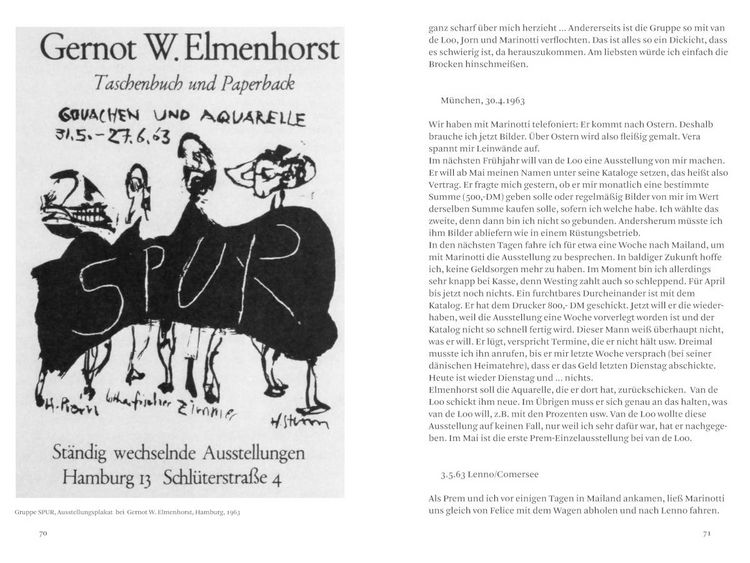 Gernot W. Elmenhorst
Taschenbuch und Paperback
GOUACHEN UND AQUARELLE
31.5.-27.6.63
SPUR
H. Prem lothar fischer Zimmer H. Sturm
Ständig wechselnde Ausstellungen
Hamburg 13 Schlüterstraße 4
Gruppe SPUR, Ausstellungsplakat bei Gernot W. Elmenhorst, Hamburg, 1963
70
ganz scharf über mich herzieht ... Andererseits ist die Gruppe so mit van
de Loo, Jorn und Marinotti verflochten. Das ist alles so ein Dickicht, dass
es schwierig ist, da herauszukommen. Am liebsten würde ich einfach die
Brocken hinschmeißen.
München, 30.4.1963
Wir haben mit Marinotti telefoniert: Er kommt nach Ostern. Deshalb
brauche ich jetzt Bilder. Über Ostern wird also fleißig gemalt. Vera
spannt mir Leinwände auf.
Im nächsten Frühjahr will van de Loo eine Ausstellung von mir machen.
Er will ab Mai meinen Namen unter seine Kataloge setzen, das heißt also
Vertrag. Er fragte mich gestern, ob er mir monatlich eine bestimmte
Summe (500,-DM) geben solle oder regelmäßig Bilder von mir im Wert
derselben Summe kaufen solle, sofern ich welche habe. Ich wählte das
zweite, denn dann bin ich nicht so gebunden. Andersherum müsste ich
ihm Bilder abliefern wie in einem Rüstungsbetrieb.
In den nächsten Tagen fahre ich für etwa eine Woche nach Mailand, um
mit Marinotti die Ausstellung zu besprechen. In baldiger Zukunft hoffe
ich, keine Geldsorgen mehr zu haben. Im Moment bin ich allerdings
sehr knapp bei Kasse, denn Westing zahlt auch so schleppend. Für April
bis jetzt noch nichts. Ein furchtbares Durcheinander ist mit dem
Katalog. Er hat dem Drucker 800,- DM geschickt. Jetzt will er die wieder-
haben, weil die Ausstellung eine Woche vorverlegt worden ist und der
Katalog nicht so schnell fertig wird. Dieser Mann weiß überhaupt nicht,
was er will. Er lügt, verspricht Termine, die er nicht hält usw. Dreimal
musste ich ihn anrufen, bis er mir letzte Woche versprach (bei seiner
dänischen Heimatehre), dass er das Geld letzten Dienstag abschickte.
Heute ist wieder Dienstag und ... nichts.
Elmenhorst soll die Aquarelle, die er dort hat, zurückschicken. Van de
Loo schickt ihm neue. Im Übrigen muss er sich genau an das halten, was
van de Loo will, z.B. mit den Prozenten usw. Van de Loo wollte diese
Ausstellung auf keinen Fall, nur weil ich sehr dafür war, hat er nachgege-
ben. Im Mai ist die erste Prem-Einzelausstellung bei van de Loo.
3.5.63 Lenno/Comersee
Als Prem und ich vor einigen Tagen in Mailand ankamen, ließ Marinotti
uns gleich von Felice mit dem Wagen abholen und nach Lenno fahren.
71